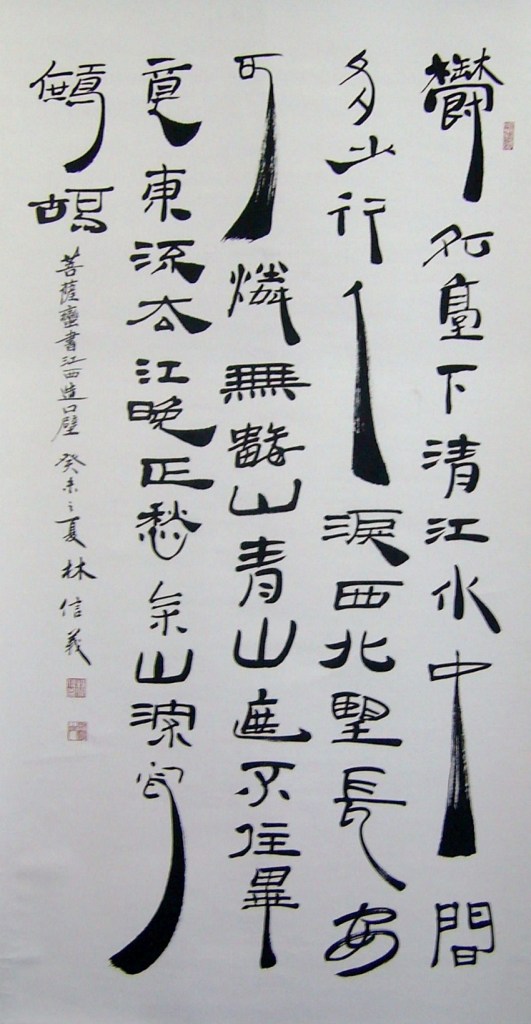 鬱孤臺下清江水中間
多少行人淚西北望長安
可憐無數山青山遮不住畢
竟東流去江晚正愁余山深聞
鷓鴣
菩薩蠻書江西造口壁 癸未之夏 林信義